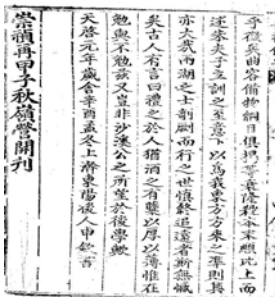 曲容備物綱目俱擧等衰隆殺本末此上而
述朱夫子立訓之至意下以爲我東方方來之準則其
亦大哉兩湖之士剞劂而行之世愼終追遠者斯無憾
矣古人有言曰禮之於人猶酒之有糵以厚以薄惟在
勉與不勉茲又豈非沙溪公之所望於後學歟
天啓元年歲舍辛酉孟冬上澣東陽後人申欽書
崇禎再甲子秋嶺營開刊